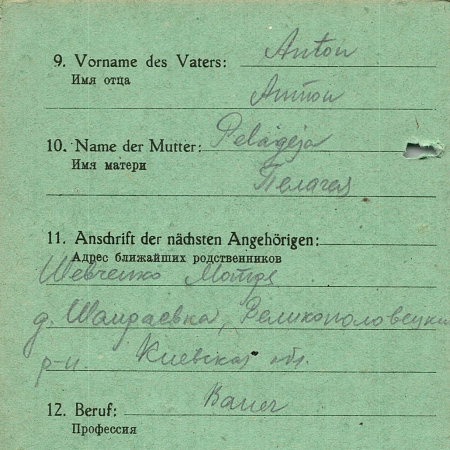 9. Vorname des Vaters: Anton
Имя отца
Антон
10. Name der Mutter: Pelageja
Имя матери
Пелагея
11. Anschrift der nächsten Angehörigen:
Адрес ближайших родственников
Шевченко Мотря
д. Шамраевка, Великополовецки
р-н. Киевская обл.
12. Beruf: Bauer
Профессия